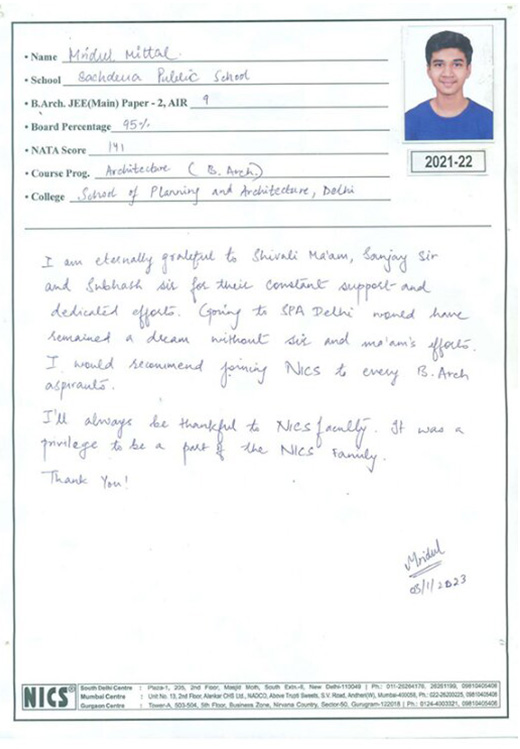 • Name Mridul Mittal
• School Sachdeva Public School
• B.Arch. JEE(Main) Paper - 2, AIR 9
• Board Percentage 95%
• NATA Score 141
• Course Prog. Architecture ( B. Arch.)
• College School of Planning and Architecture, Delhi
2021-22
I am eternally grateful to Shivali Ma'am, Sanjay Sir
and Subhash sir for their constant support and
dedicated efforts. Going to SPA Delhi would have
remained a dream without sir and ma'am's efforts.
I would recommend joining NICS to every B. Arch
aspirants.
I'll always be thankful to NICS faculty. It was a
privilege to be a part of the NICS Family.
Thank You!
Mridul
03/1/2023
NICS®
South Delhi Centre : Plaza-1, 205, 2nd Floor, Masjid Moth, South Extn.-II, New Delhi-110049 | Ph.: 011-26264176, 26261199, 09810405406
Mumbai Centre : Unit No. 13, 2nd Floor, Alankar CHS Ltd., NADCO, Above Trupti Sweets, S.V. Road, Andheri(W), Mumbai-400058, Ph.:022-26200225, 09810405406
Gurgaon Centre : Tower-A, 503-504, 5th Floor, Business Zone, Nirvana Country, Sector-50, Gurugram-122018 | Ph.: 0124-4003321, 09810405406